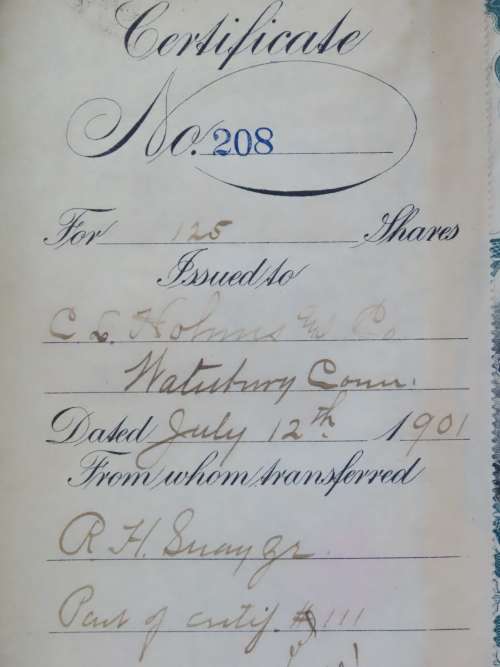 Certificate
No. 208
For 125 Shares
Issued to
C. L. Holmes & Co
Waterbury Conn.
Dated July 12th 1901
From whom transferred
R. H. Jr.
Part of certif. # 111